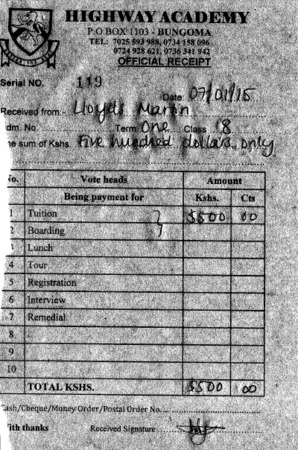 HIGHWAY ACADEMY
P.O BOX 1103 - BUNGOMA
TEL: 7025 593 988, 0734 158 096
0724 928 621, 0736 341 942
OFFICIAL RECEIPT
Serial NO. 119
Date: 07/01/15
Received from:- Lloyds Maron
dm. No. Term: One Class 8
he sum of Kshs. Five hundred dollars only
No. Vote heads Amount
Being payment for Kshs. Cts
1 Tuition $500 00
2 Boarding
3 Lunch
4 Tour
5 Registration
6 Interview
7 Remedial
8
9
10
TOTAL KSHS. $500 00
Cash/Cheque/Money Order/Postal Order No.
With thanks Received Signature